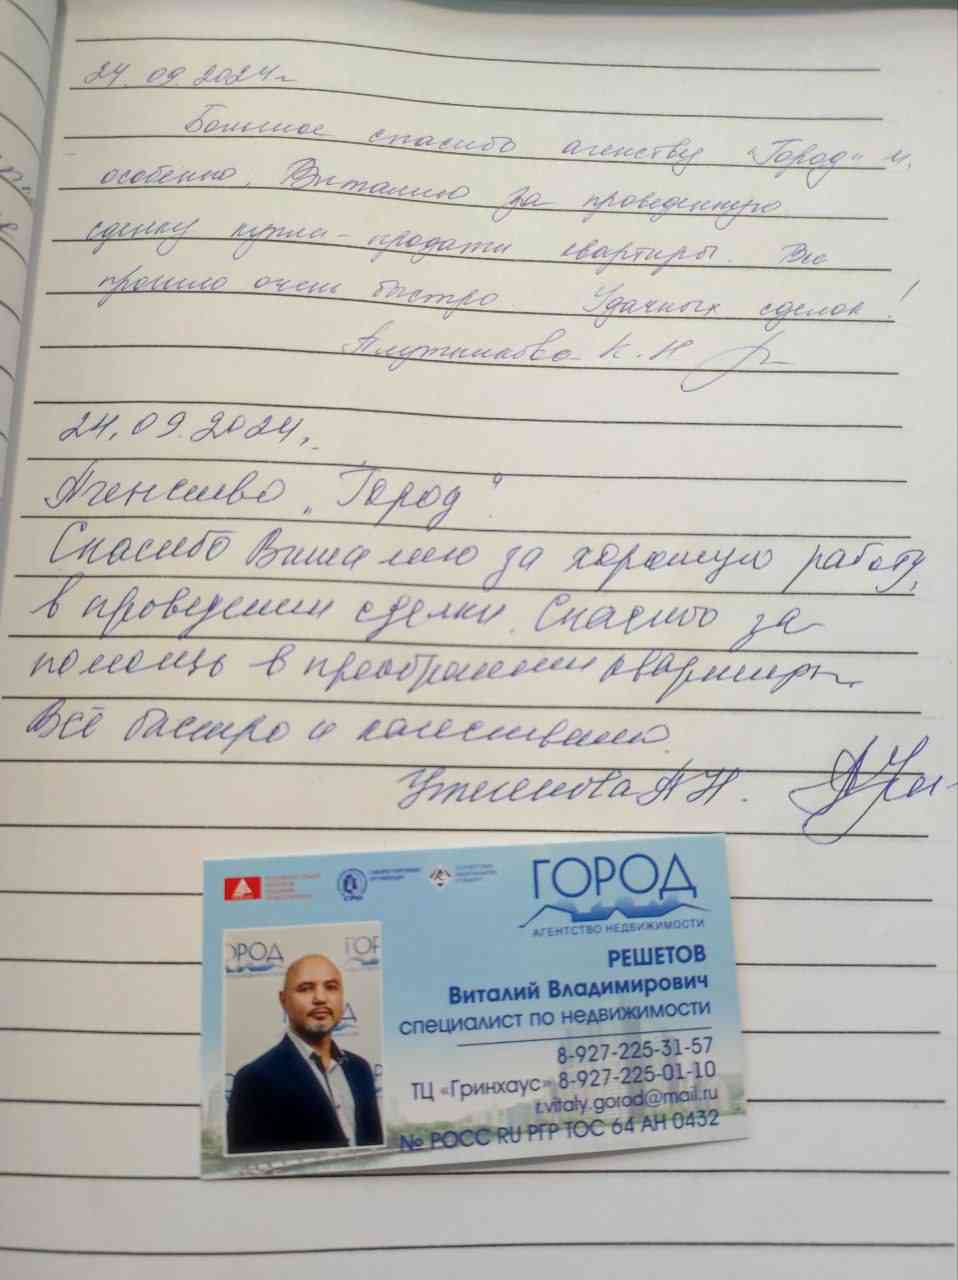 24.09.2024г
Большое спасибо агенству "Город" и
особенно, Виталию за проведенную
сделку купли-продажи квартиры. Все
прошло очень быстро. Удачных сделок!
К.Н
24.09.2024г.
Агенство „Город"
Спасибо Виталию за хорошую работу,
в проведении сделки. Спасибо за
помощь в преобретении квартиры.
Всё быстро и качественно.
А Н.
ГОРОД
АГЕНТСТВО НЕДВИЖИМОСТИ
РЕШЕТОВ
Виталий Владимирович
специалист по недвижимости
8-927-225-31-57
ТЦ «Гринхаус» 8-927-225-01-10
r.vitaly.gorod@mail.ru
№ РОСС RU РГР ТОС 64 АН 0432